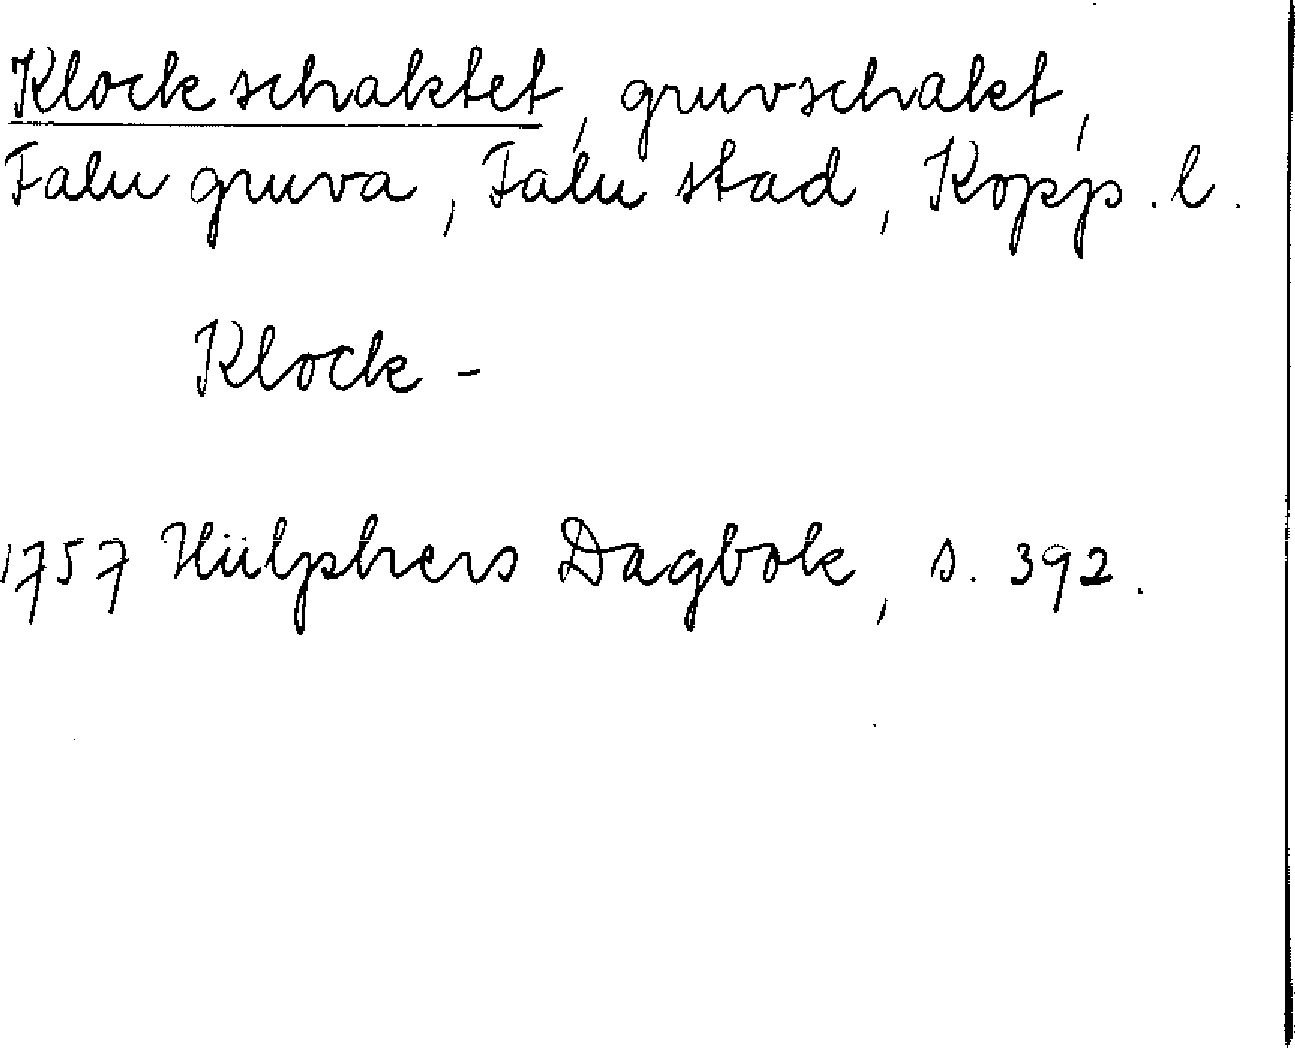 Klockschaktet, gruvschakt,
Falu gruva, Falu stad, Kopp. l.
Klock -
1757 Hülphers Dagbok, s. 392.